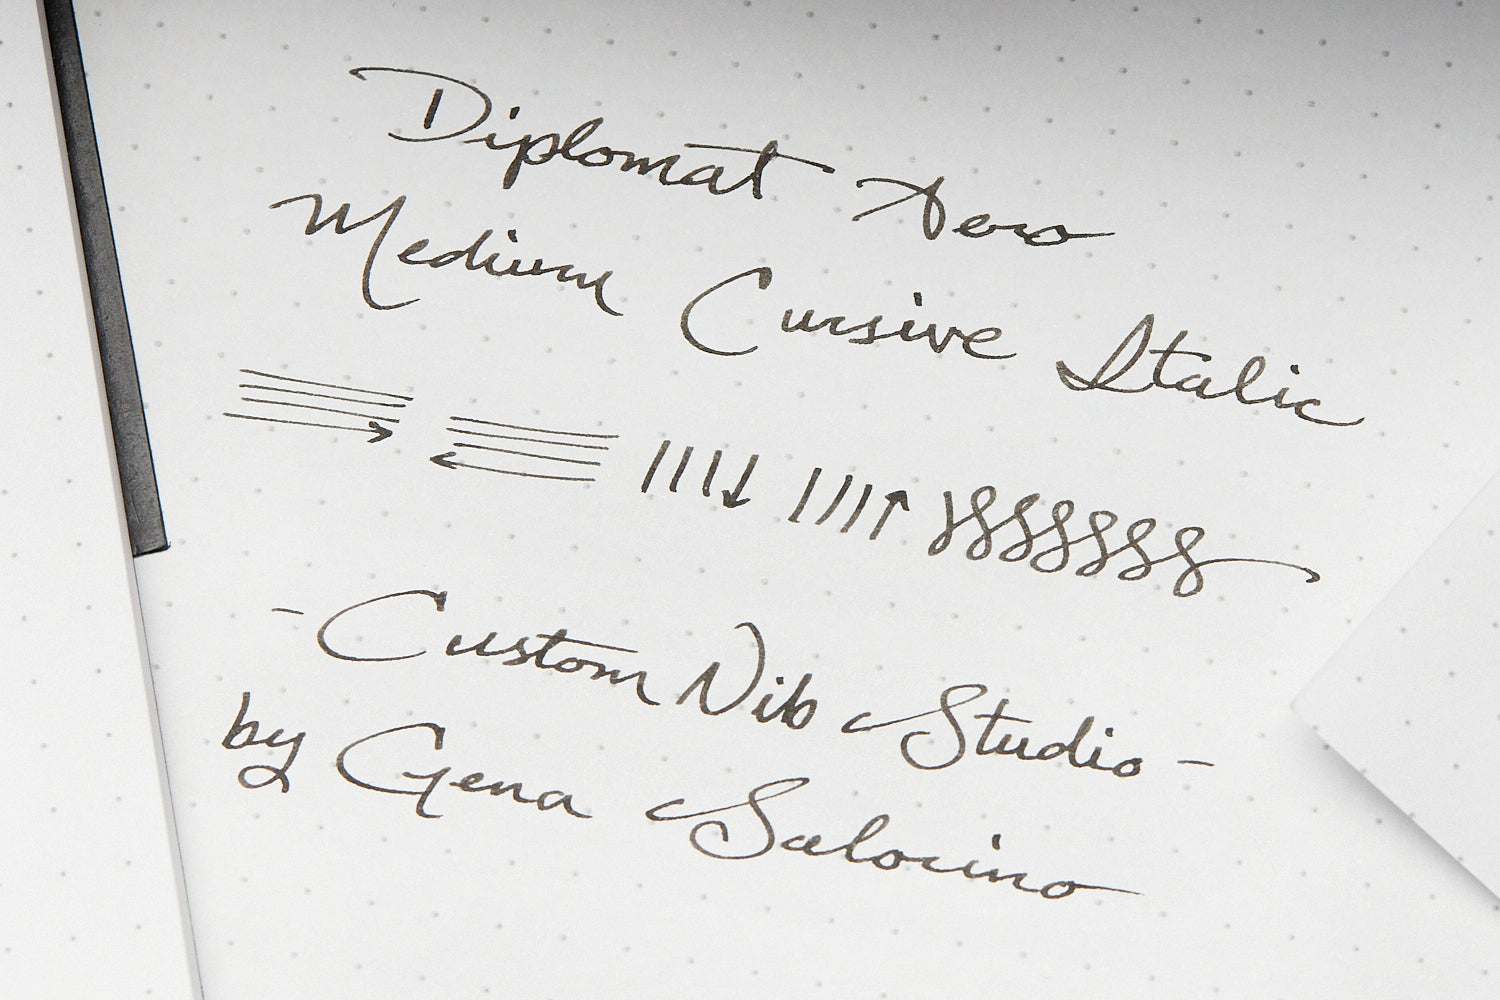 Diplomat Aero
Medium Cursive Italic
- Custom Nib Studio -
by Gena Salorino